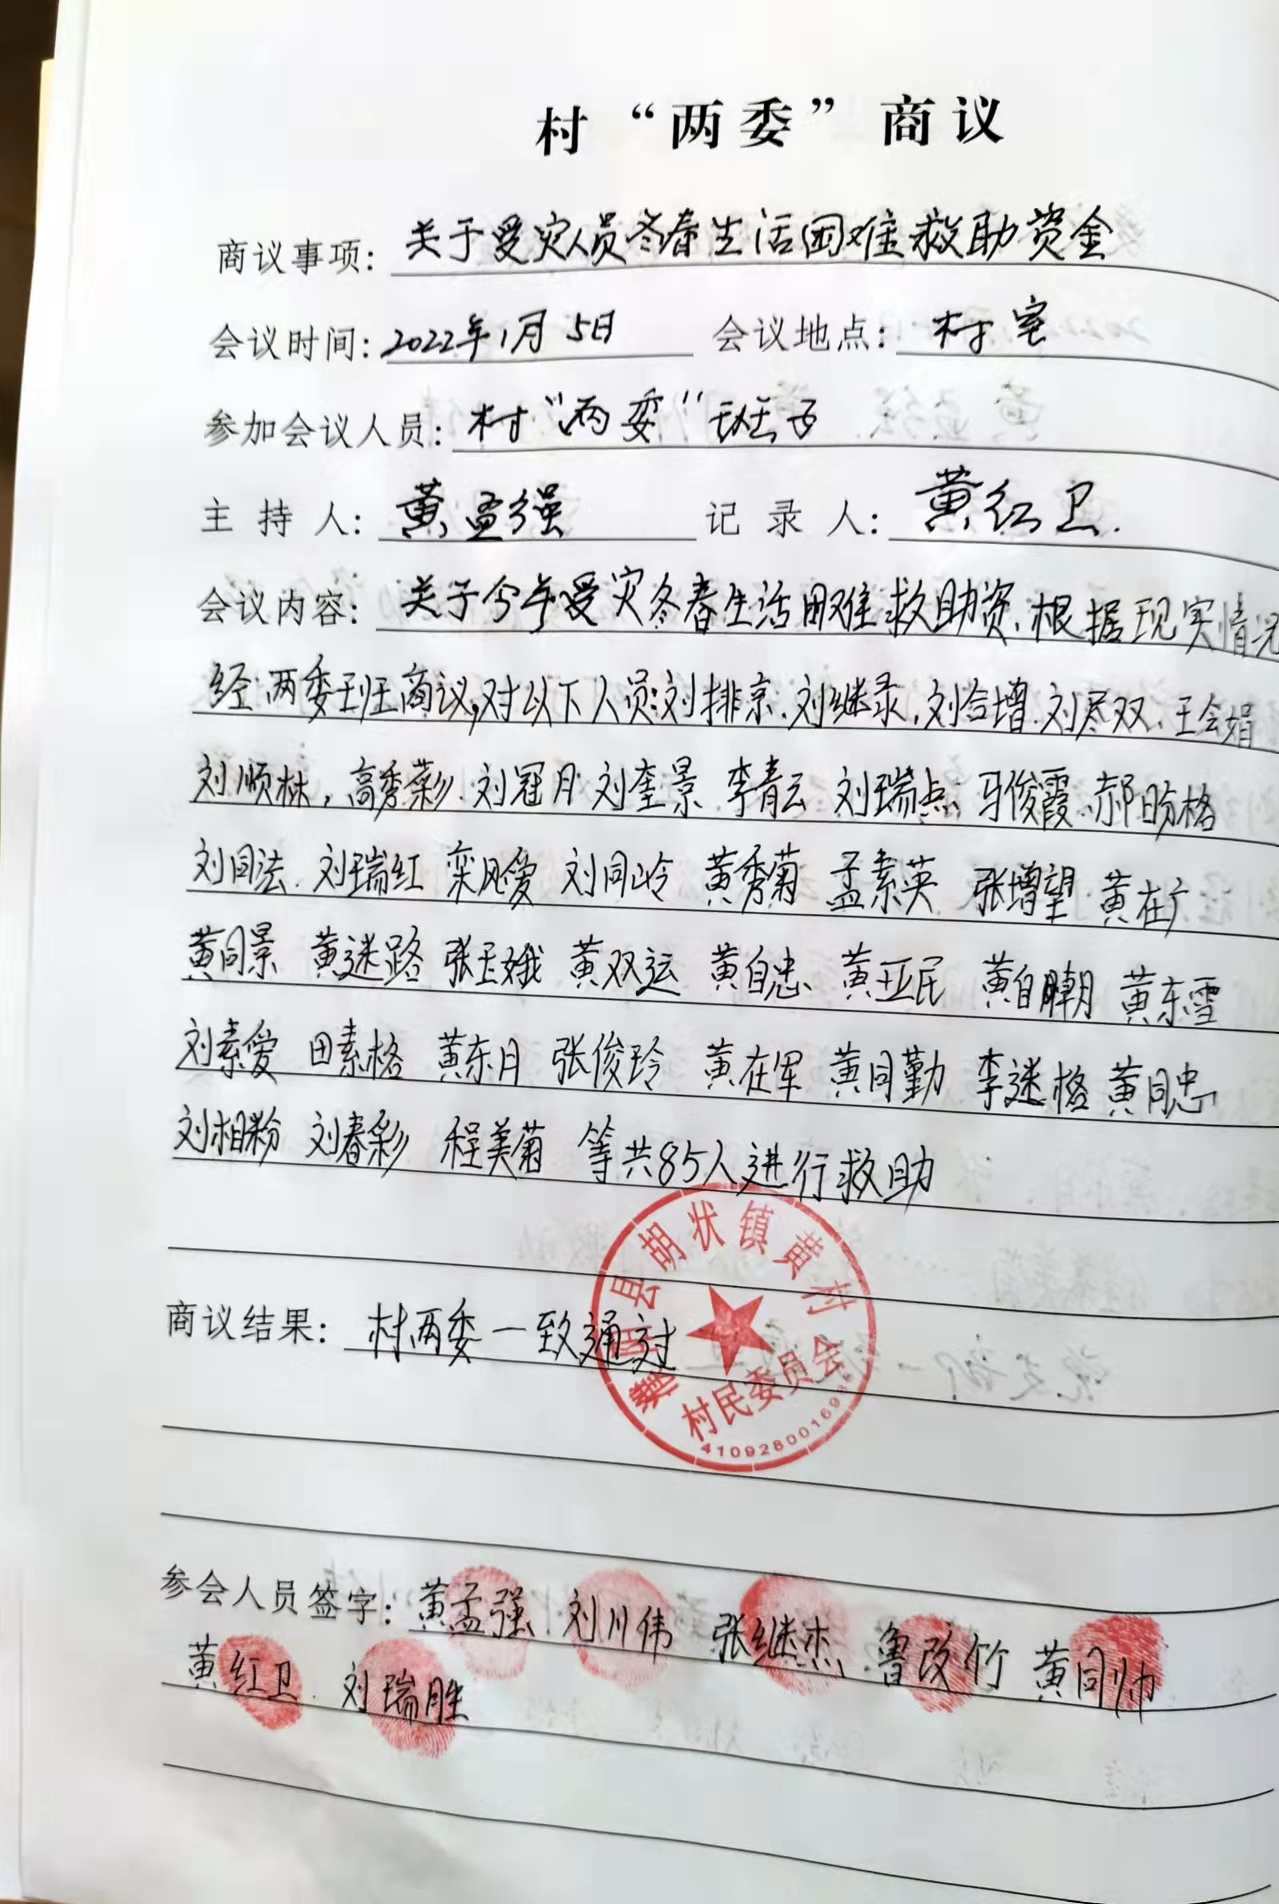 村“两委”商议
商议事项：关于受灾人员冬春生活困难救助资金
会议时间：2022年1月5日 会议地点：村室
参加会议人员：村“两委”班子
主持人：黄孟强 记录人：黄红卫.
会议内容：关于今年受灾冬春生活困难救助资、根据现实情况
经两委班商议,对以下人员:刘排京、刘继录,刘合增、刘尽双、王会娟
刘顺林,高秀彩、刘冠月 刘奎景 李青云 刘瑞点、马俊霞、郝盼格
刘同法、刘瑞红 栾凤爱 刘同岭 黄秀菊 孟素英 张增望 黄在广
黄同景 黄迷路 张玉娥 黄双运 黄自忠、黄亚民 黄自朝 黄东雪
刘素爱 田素格 黄东月 张俊玲 黄在军 黄同勤 李迷格 黄同忠
刘相粉 刘春彩 程美菊 等共85人进行救助
县胡状镇黄村
商议结果：村两委一致通过
村民委员会
参会人员签字：黄孟强 刘川伟 张继杰 鲁改竹 黄同帅
黄红卫 刘瑞胜